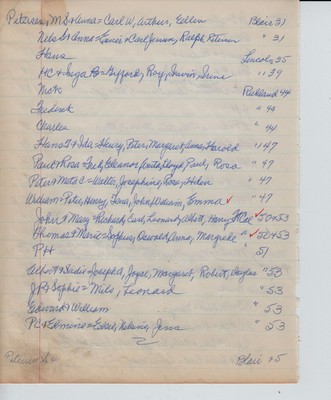 Petersen, M S & Anna = Carl W, Arthur, Edlen Blair 31
Nels & Anna = & Carl Jensen, Ralph Petersen " 31
Hans Lincoln 35
HC & Inga = Gifford, Roy, Irvin, Irene " 39
Mok Richland 44
Frederik " 44
Charles " 44
Hans & Ida = Henry, Peter, Margaret, Anna, Harold " 47
Paul & Rosa = Fred, Eleanor, Anita, Lloyd, Paul, Rosa " 47
Peter & Meta C = Walter, Josephine, Rosa, Helen " 47
William = Peter, Henry, John, William, Emma ✓ " 47
John & Mary = Richard, Earl, Leonard, Albert, Henry ✓ 50 & 53
Thomas & Marie = Sophus, Oswald, Anna, Margrete " ✓ 50 & 53
PH " 51
Albert & Sadie = Joseph, Joyce, Margaret, Robert, Douglas " 53
JP & Sophie = Niels, Leonard " 53
Edward & William " 53
PC & = Jens " 53
Petersen Blair 25